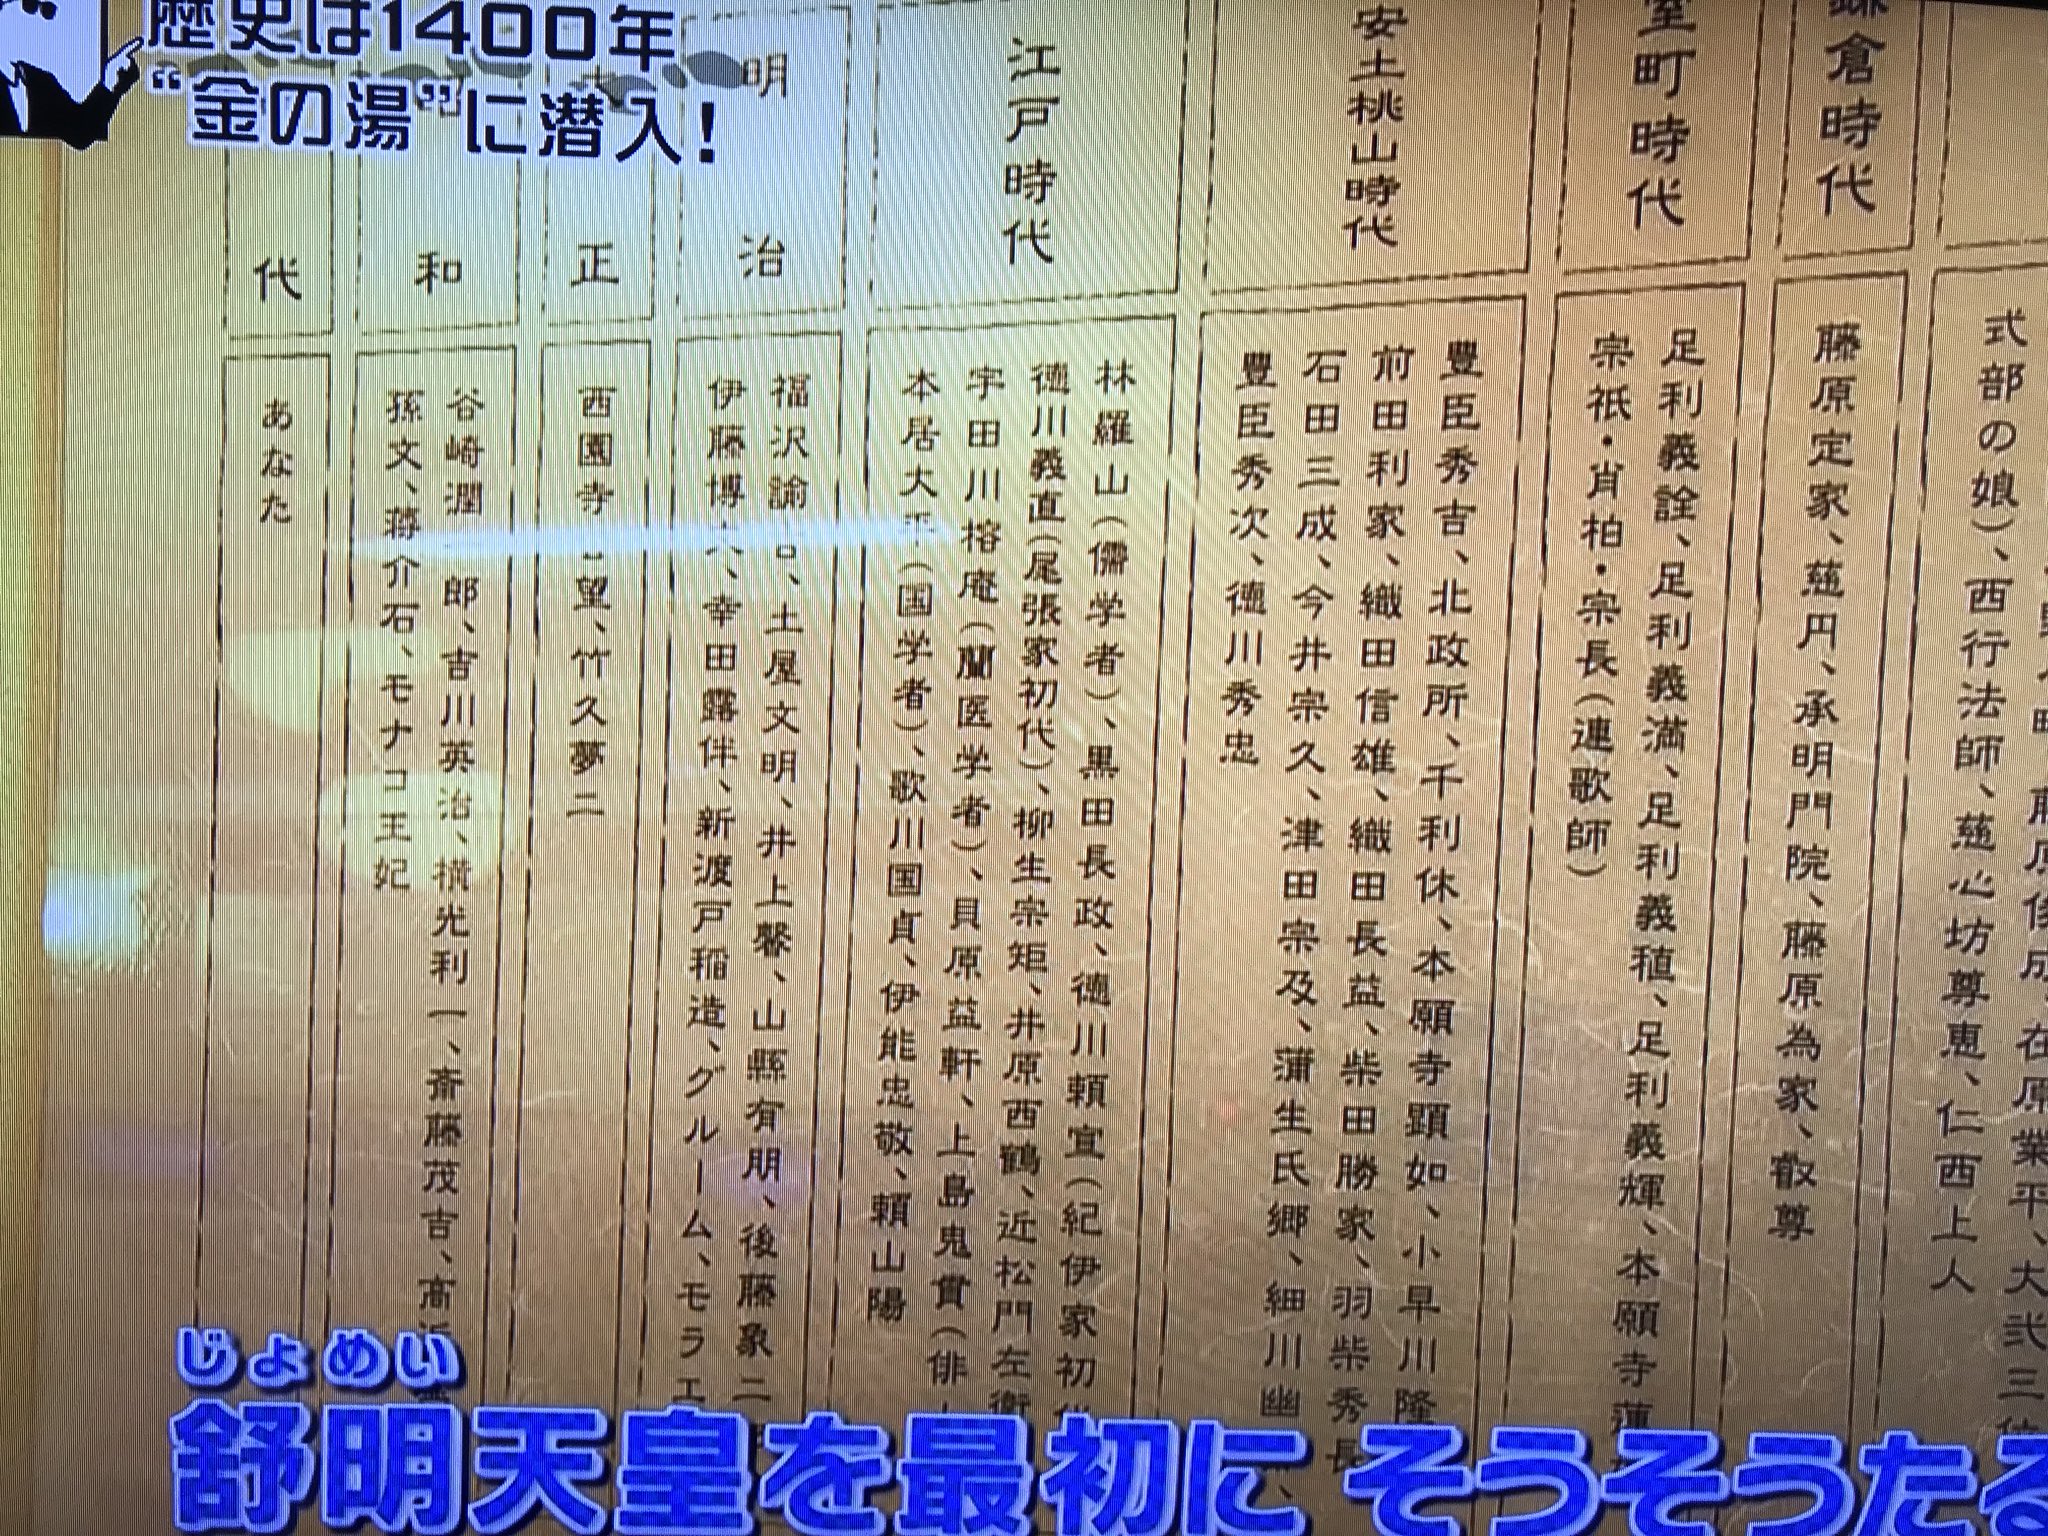 歴史は1400年
“金の湯”に潜入!
式部の娘)、西行法師、慈心坊尊恵、仁西上人
鎌倉時代
藤原定家、慈円、承明門院、藤原為家、叡尊
室町時代
足利義詮、足利義満、足利義稙、足利義輝、本願寺蓮
宗祇・肖柏・宗長(連歌師)
安土桃山時代
豊臣秀吉、北政所、千利休、本願寺顕如、小早川隆
前田利家、織田信雄、織田長益、柴田勝家、羽柴秀長
石田三成、今井宗久、津田宗及、蒲生氏郷、細川幽
豊臣秀次、徳川秀忠
江戸時代
林羅山(儒学者)、黒田長政、徳川頼宣(紀伊家初代
徳川義直(尾張家初代)、柳生宗矩、井原西鶴、近松門左衛
宇田川榕庵(蘭医学者)、貝原益軒、上島鬼貫(俳
本居大平(国学者)、歌川国貞、伊能忠敬、頼山陽
明治
福沢諭吉、土屋文明、井上馨、山縣有朋、後藤象二
伊藤博文、幸田露伴、新渡戸稲造、グルーム、モラエ
正
西園寺公望、竹久夢二
和
谷崎潤一郎、吉川英治、横光利一、斎藤茂吉、高浜
孫文、蒋介石、モナコ王妃
代
あなた
じょめい
舒明天皇を最初に そうそうたる